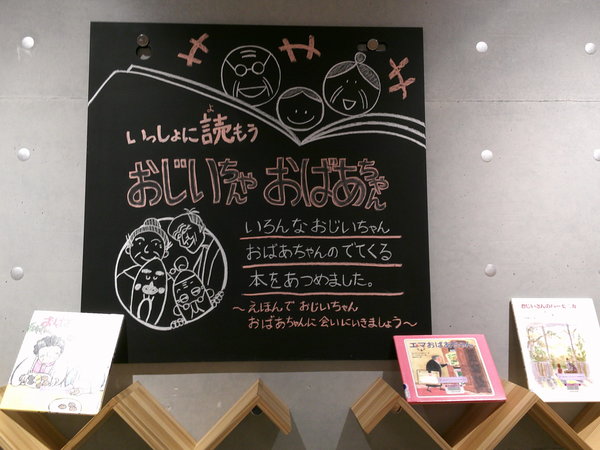 きゃっ
よ
いっしょに読もう
おじいちゃん おばあちゃん
いろんなおじいちゃん
おばあちゃんのでてくる
本をあつめました。
～えほんで おじいちゃん
おばあちゃんに会いにいきましょう～
エマおばあちゃん